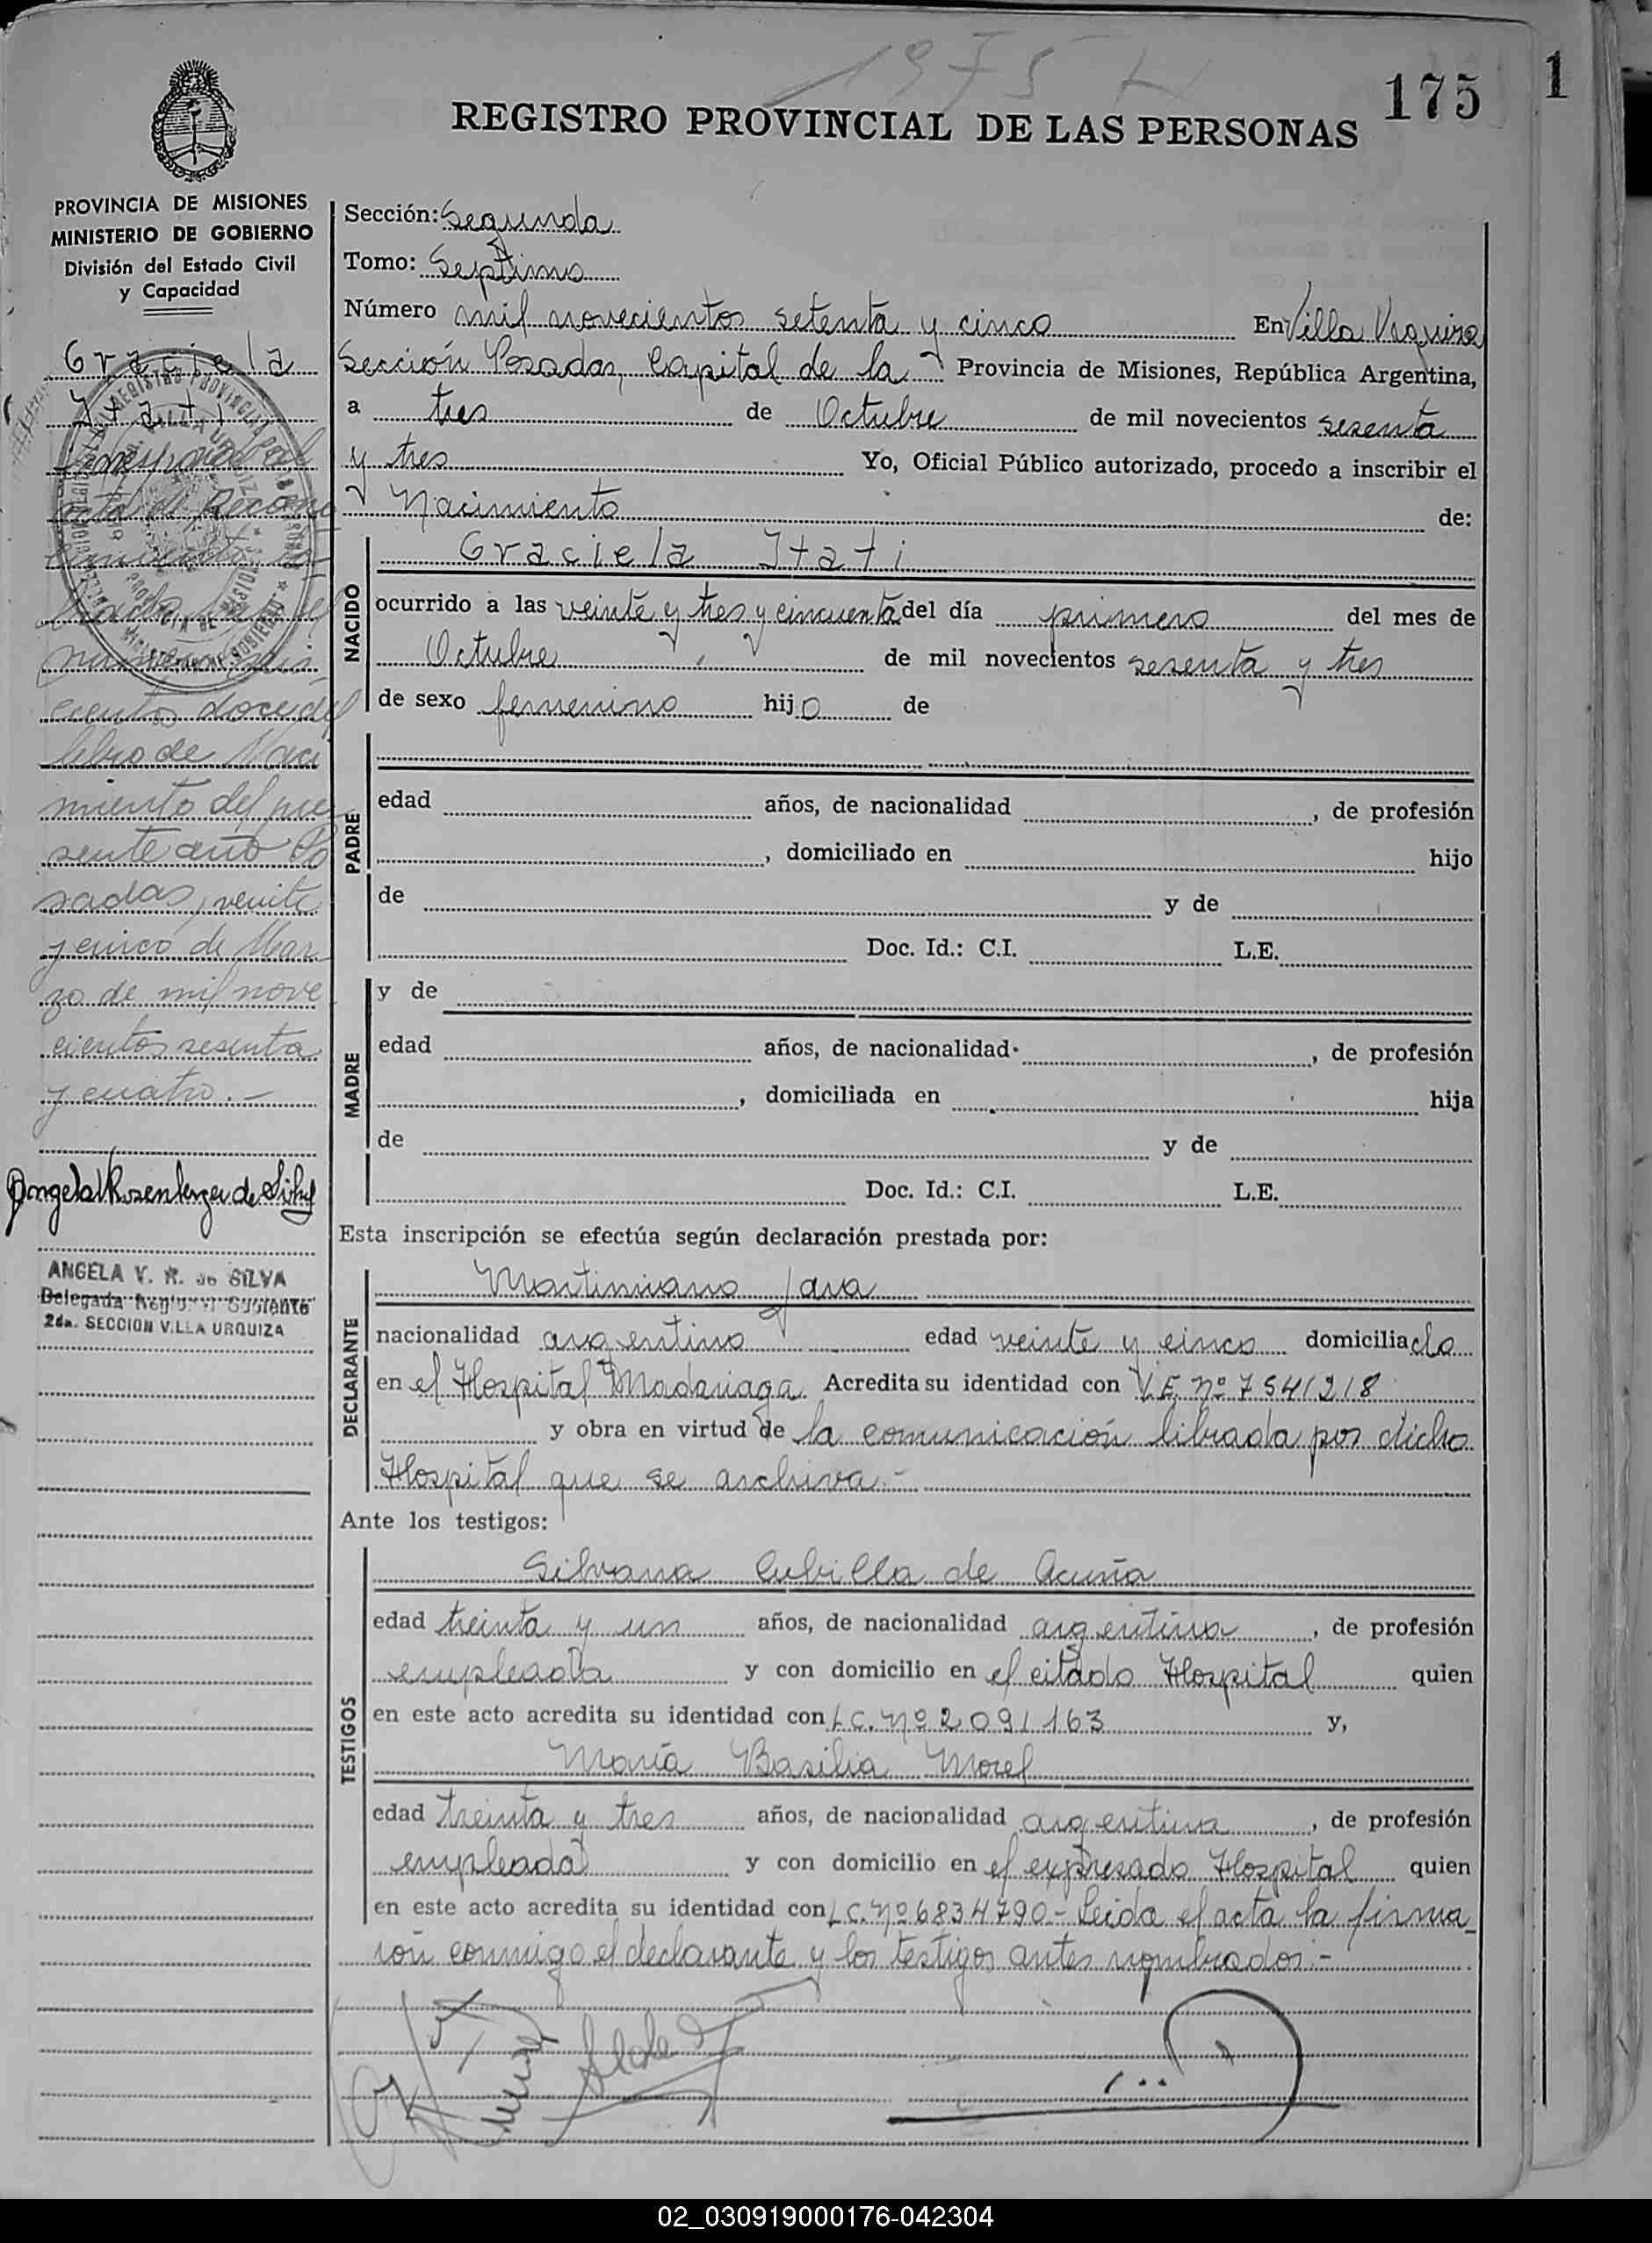 1975
175
1
REGISTRO PROVINCIAL DE LAS PERSONAS
PROVINCIA DE MISIONES
MINISTERIO DE GOBIERNO
División del Estado Civil
y Capacidad
Graciela
Itati
acta de Recono
cimiento
cientos doce del
libro de Naci
miento del pre
sente año Po
sadas, veinte
y cinco de Mar
zo de mil nove
cientos sesenta
y cuatro.-
ANGELA V. R. de SILVA
Delegada
2da. SECCION VILLA URQUIZA
Sección: Segunda
Tomo: Septimo
Número mil novecientos setenta y cinco En Villa Urquiza
Sección Posadas, Capital de la Provincia de Misiones, República Argentina,
a tres de Octubre de mil novecientos sesenta
y tres Yo, Oficial Público autorizado, procedo a inscribir el
Nacimiento de:
NACIDO
Graciela Itati
ocurrido a las veinte y tres y cincuenta del día primero del mes de
Octubre de mil novecientos sesenta y tres
de sexo femenino hijo de
PADRE
edad años, de nacionalidad , de profesión
, domiciliado en hijo
de y de
Doc. Id.: C.I. L.E.
MADRE
y de
edad años, de nacionalidad , de profesión
, domiciliada en hija
de y de
Doc. Id.: C.I. L.E.
Esta inscripción se efectúa según declaración prestada por:
DECLARANTE
Martiniano Jara
nacionalidad argentino edad veinte y cinco domiciliado
en el Hospital Madariaga. Acredita su identidad con nº 7541218
y obra en virtud de la comunicación librada por dicho
Hospital que se archiva.-
Ante los testigos:
TESTIGOS
Silvana Cubilla de Acuña
edad treinta y un años, de nacionalidad argentina, de profesión
empleada y con domicilio en el citado Hospital quien
en este acto acredita su identidad con L.C. nº 2091163 y,
María Basilia Morel
edad treinta y tres años, de nacionalidad argentina, de profesión
empleada y con domicilio en el expresado Hospital quien
en este acto acredita su identidad con L.C. nº 6834790.- Leida el acta la firma_
ron conmigo el declarante y los testigos antes nombrados.-
02_030919000176-042304